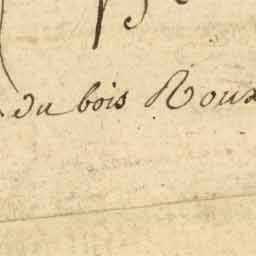 du bois Roux